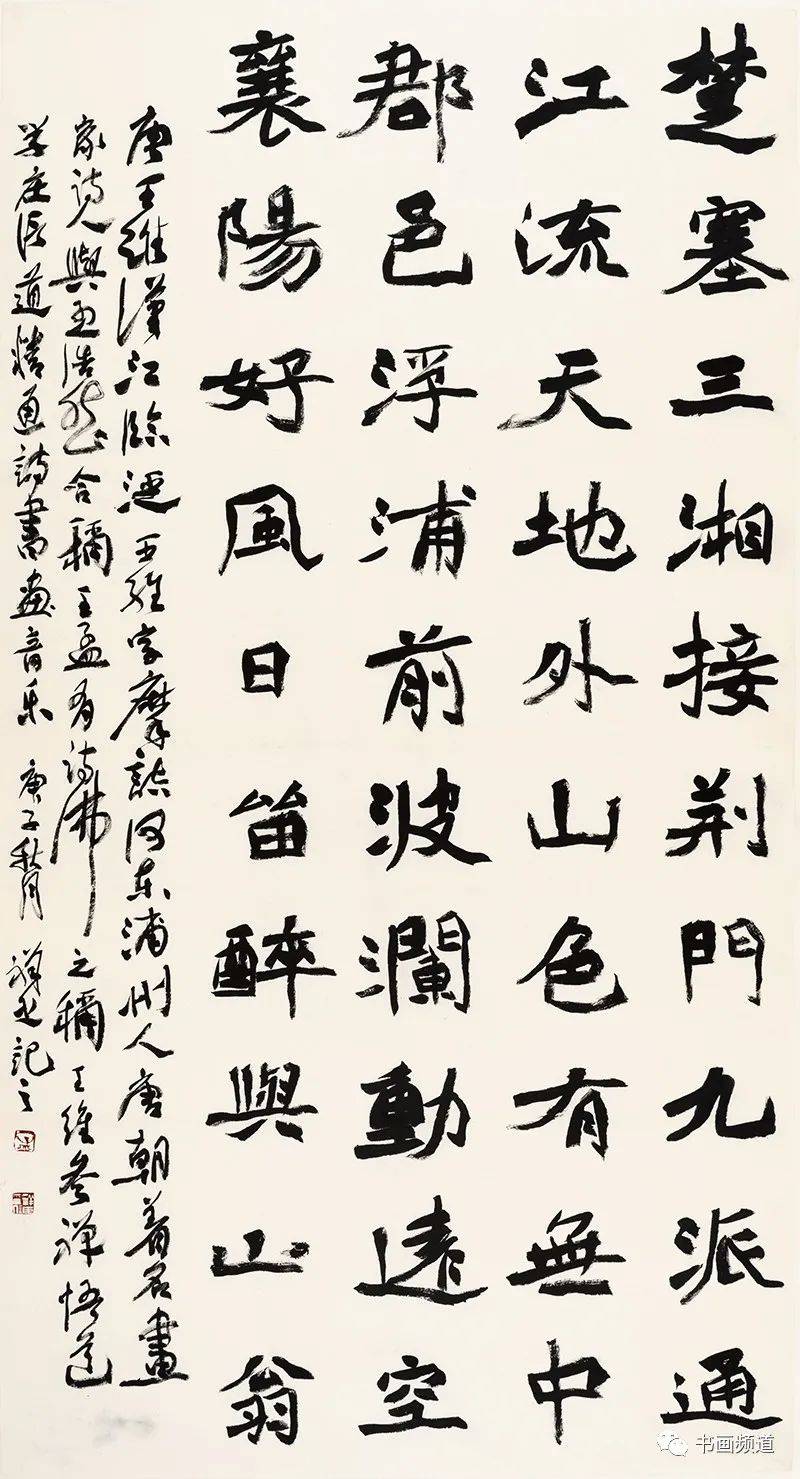 楚塞三湘接荆門九派通
江流天地外山色有無中
郡邑浮浦前波瀾動遠空
襄陽好風日留醉與山翁
唐王維漢江臨泛王維字摩詰河东蒲州人唐朝着名畫
家诗人與孟浩然合稱王孟有诗佛之稱王维参禅悟道
学庄信道精通詩書畫音乐庚子秋月禅之記之
书画频道